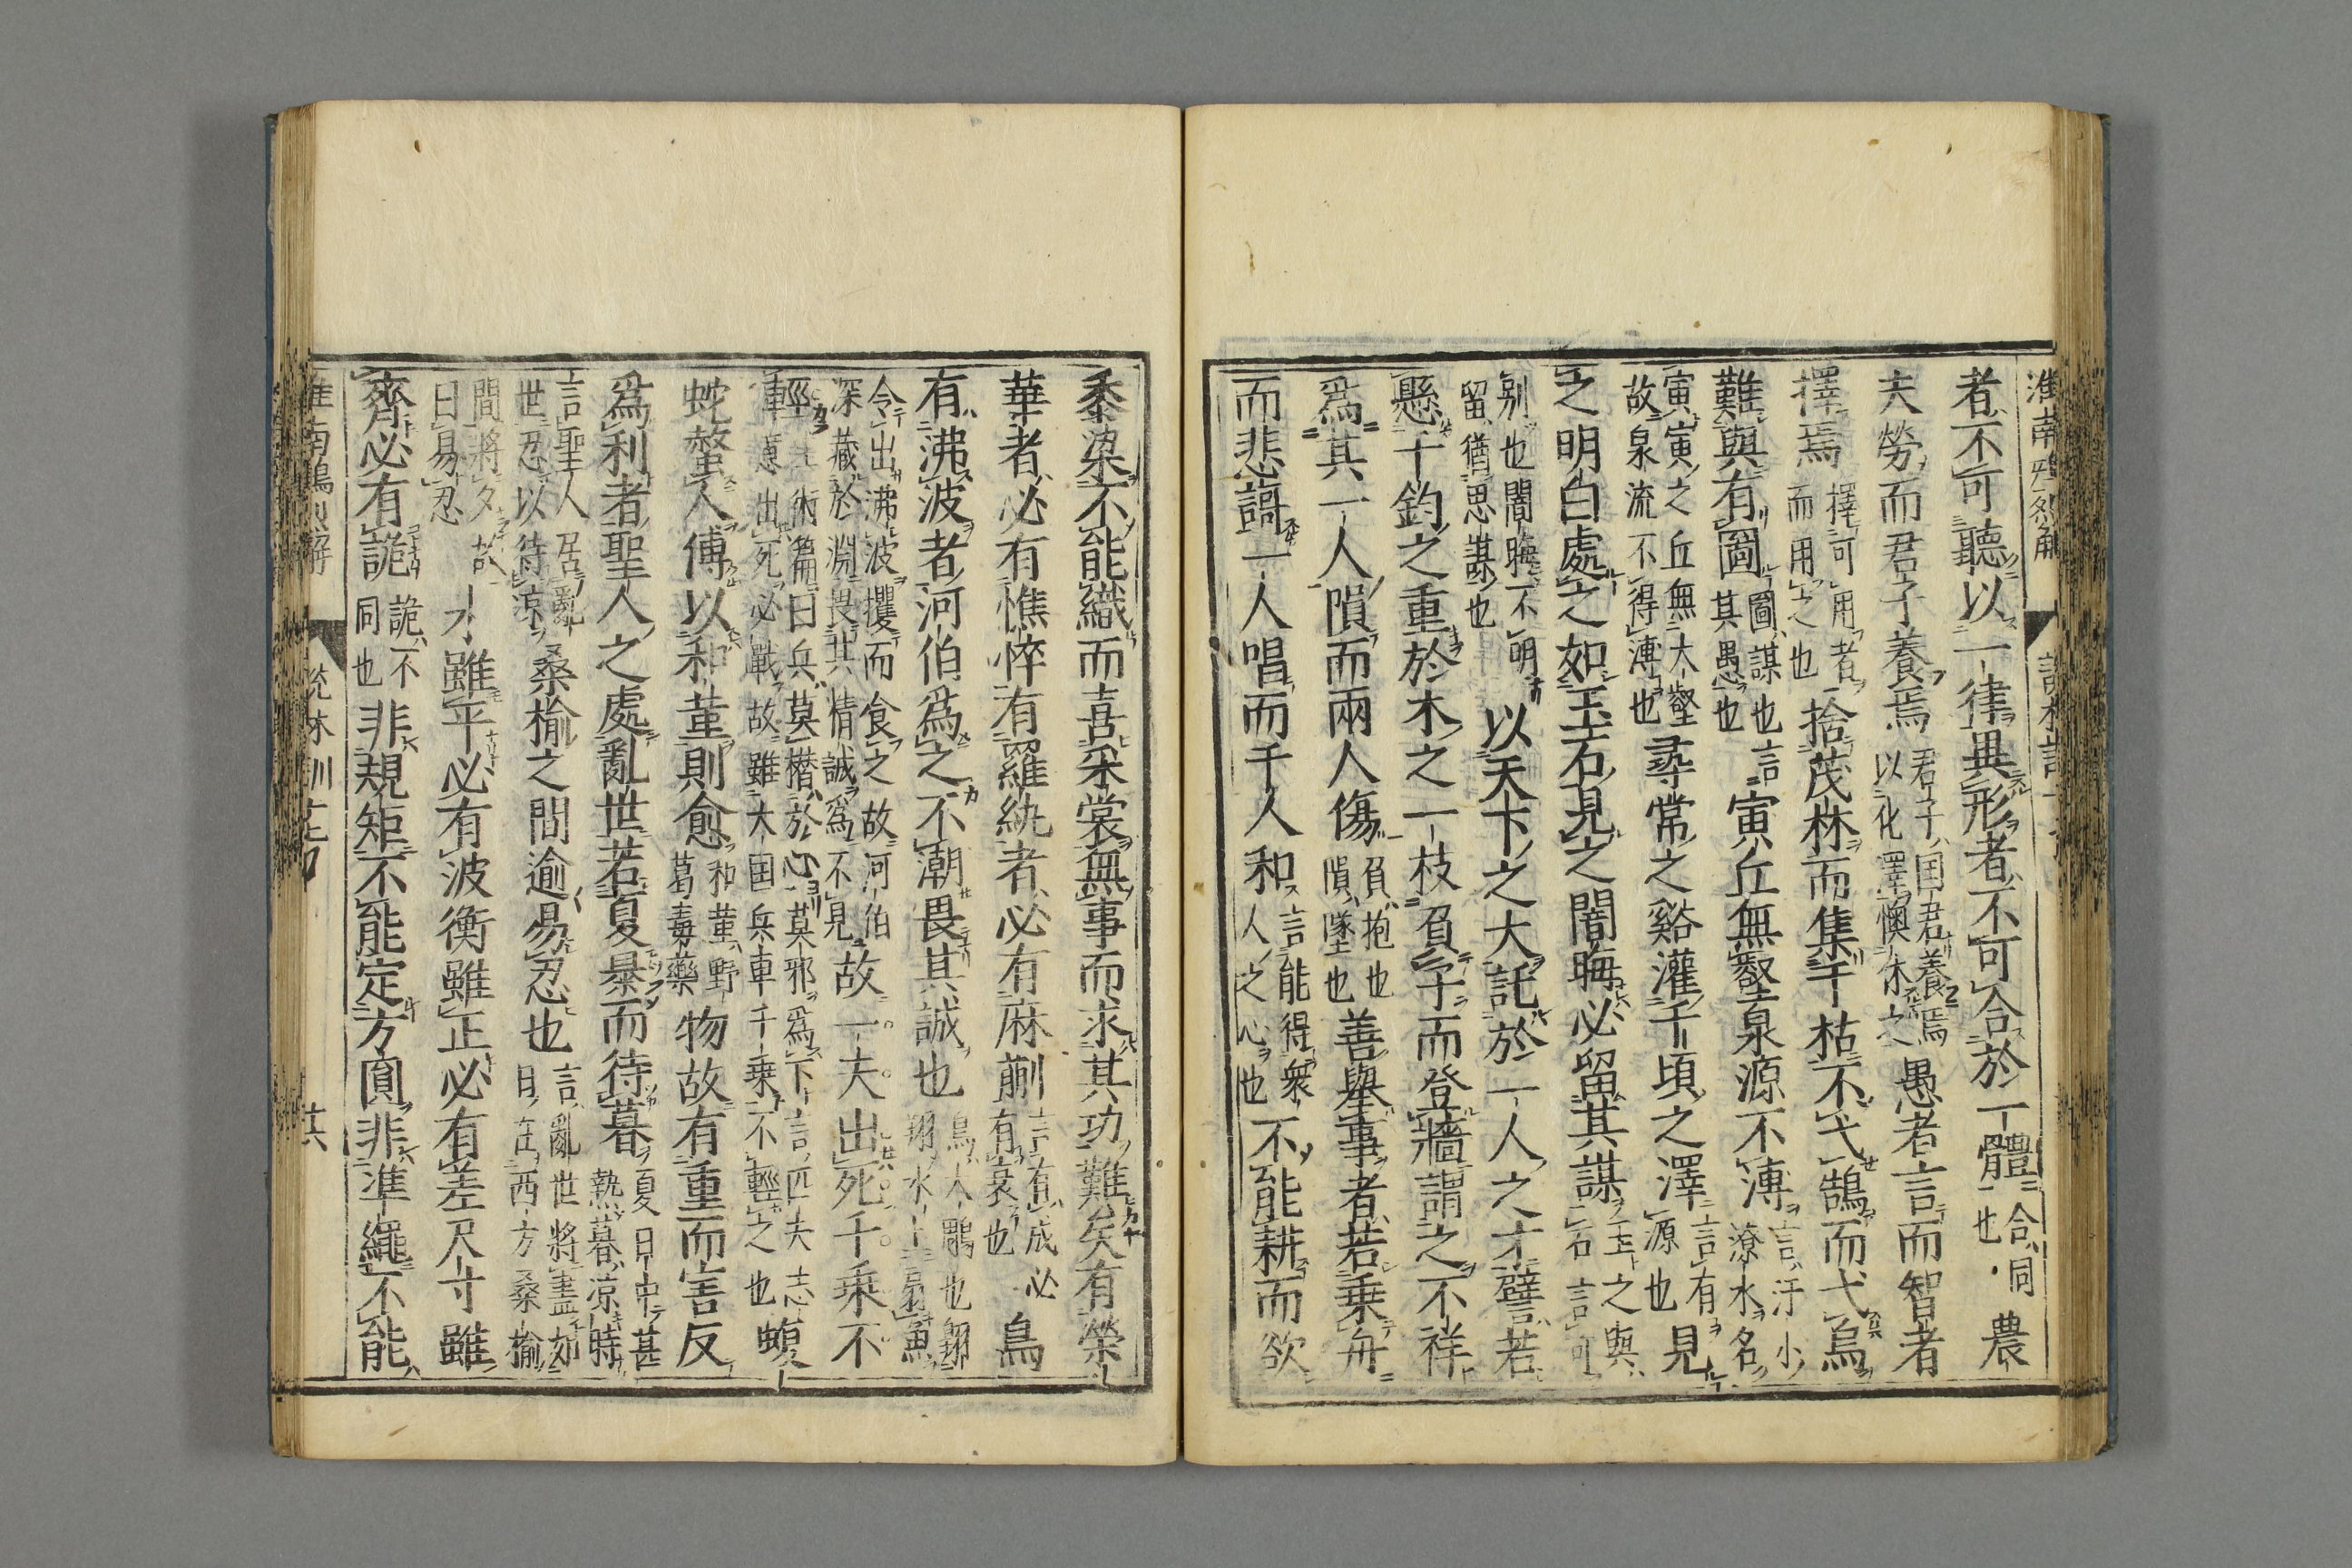 者不可聽以一律異形者不可合於一體合同也農
夫勞而君子養焉君子国君養焉以化澤懊休之愚者言而智者
擇焉擇可用者而用之也捨茂林而集于枯不弋鵠而弋烏
難與有圖圖謀也言其愚也寅丘無壑泉源不溥言汙小潦水名
寅寅之丘無大壑故泉流不得溥也尋常之谿灌千頃之澤言有源也見
之明白處之如玉石見之闇晦必留其謀玉之與石言可
別也闇晦不明留猶思謀也以天下之大託於一人之才譬若
懸千鈞之重於木之一枝負子而登牆謂之不祥
為其一人隕而兩人傷負抱也隕墜也善舉事者若乗舟
而悲謌一人唱而千人和言能得衆人之心也不能耕而欲
黍粱不能織而喜采裳無事而求其功難矣有榮
華者必有憔悴有羅紈者必有麻蒯言有成必有衰也鳥
有沸波者河伯為之不潮畏其誠也鳥大鵰也翱翔水上扇魚
令出沸波攫而食之故河伯深藏於淵畏其情誠為不見故一夫出死千乗不
輕術篇曰兵莫憯於心莫邪為下言匹夫志意出死必戰故雖大国兵車千乗不輕之也蝮
蛇螫人傅以和菫則愈和菫野葛毒藥物故有重而害反
為利者聖人之處亂世若夏暴而待暮夏日中甚熱暮凉時
言聖人居亂世忍以待凉桑榆之間逾易忍也言亂世將盡如日在西方桑榆
間將夕故曰易忍水雖平必有波衡雖正必有差尺寸雖
齊必有詭詭不同也非規矩不能定方圓非準繩不能